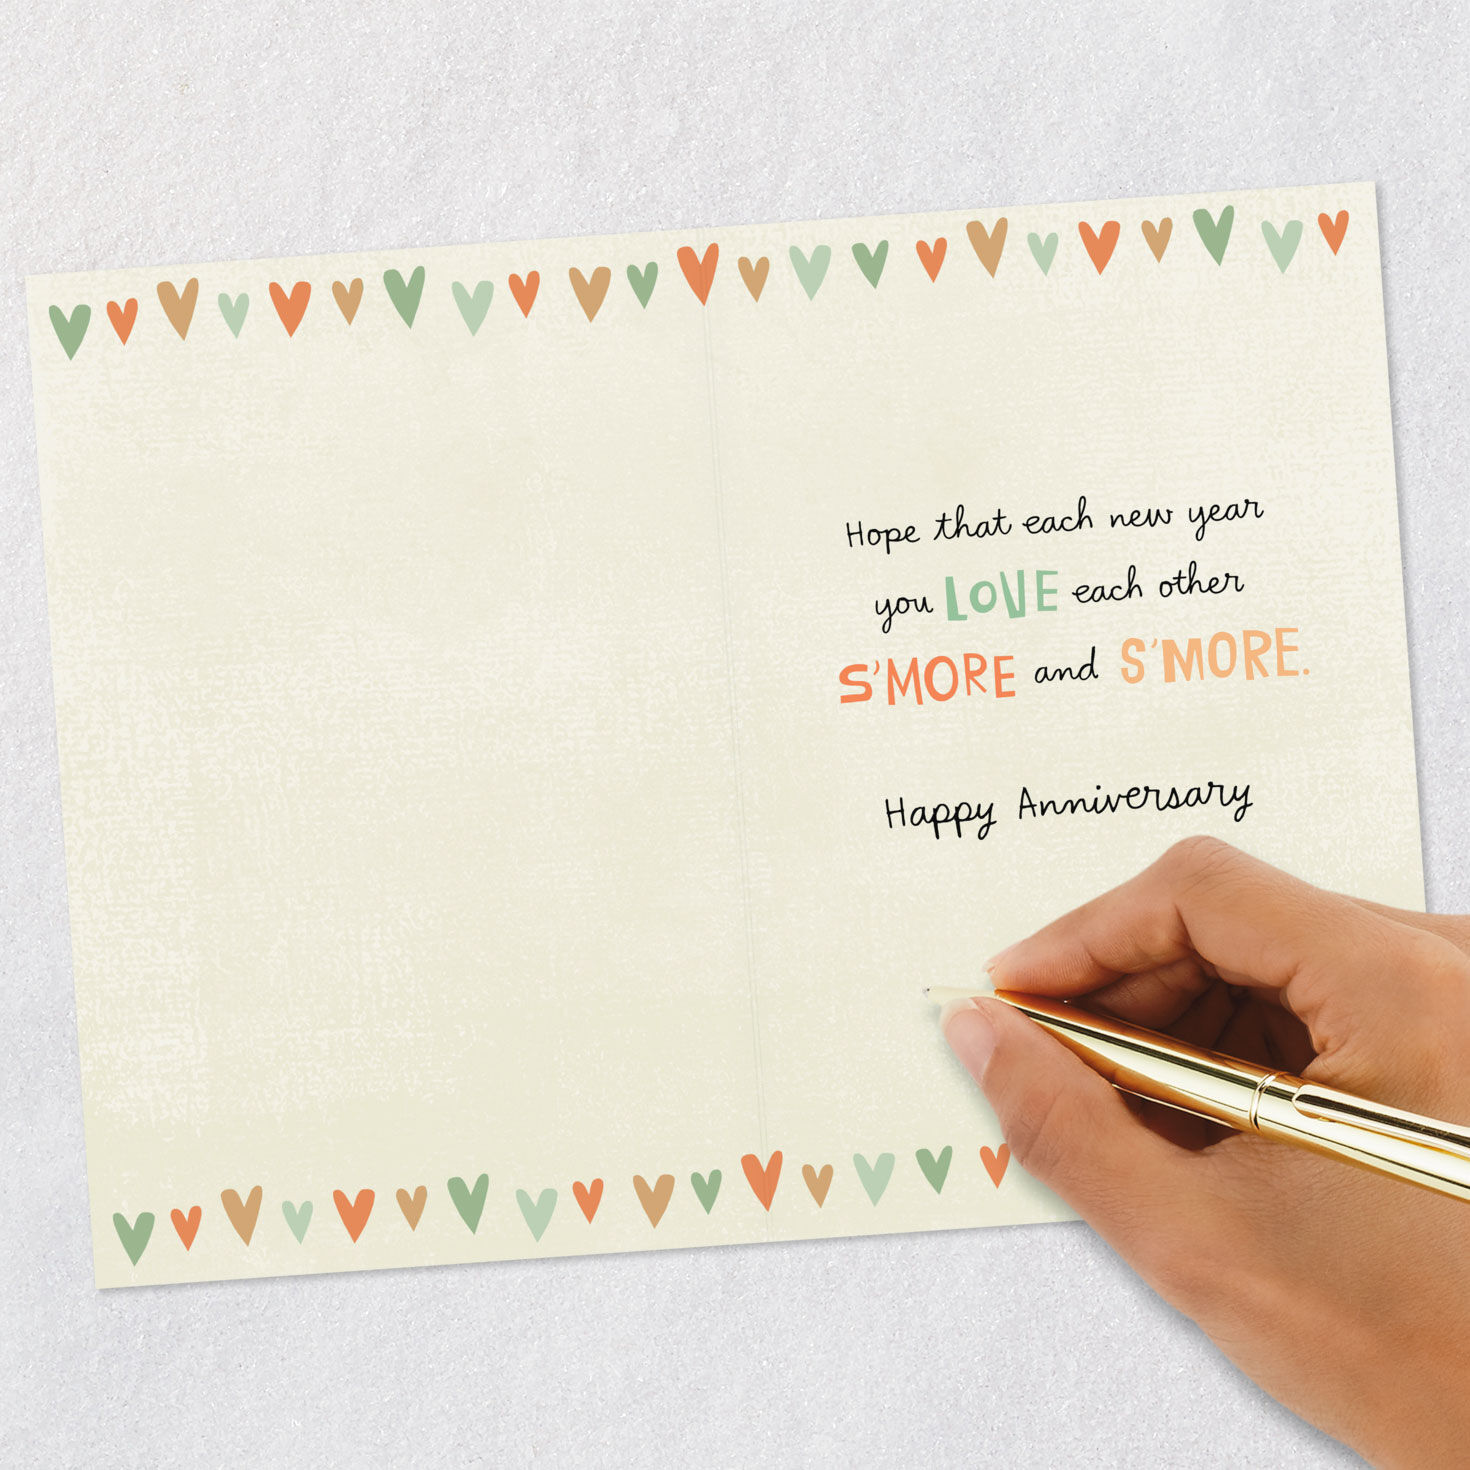 Hope that each new year
you LOVE each other
S'MORE and S'MORE.
Happy Anniversary